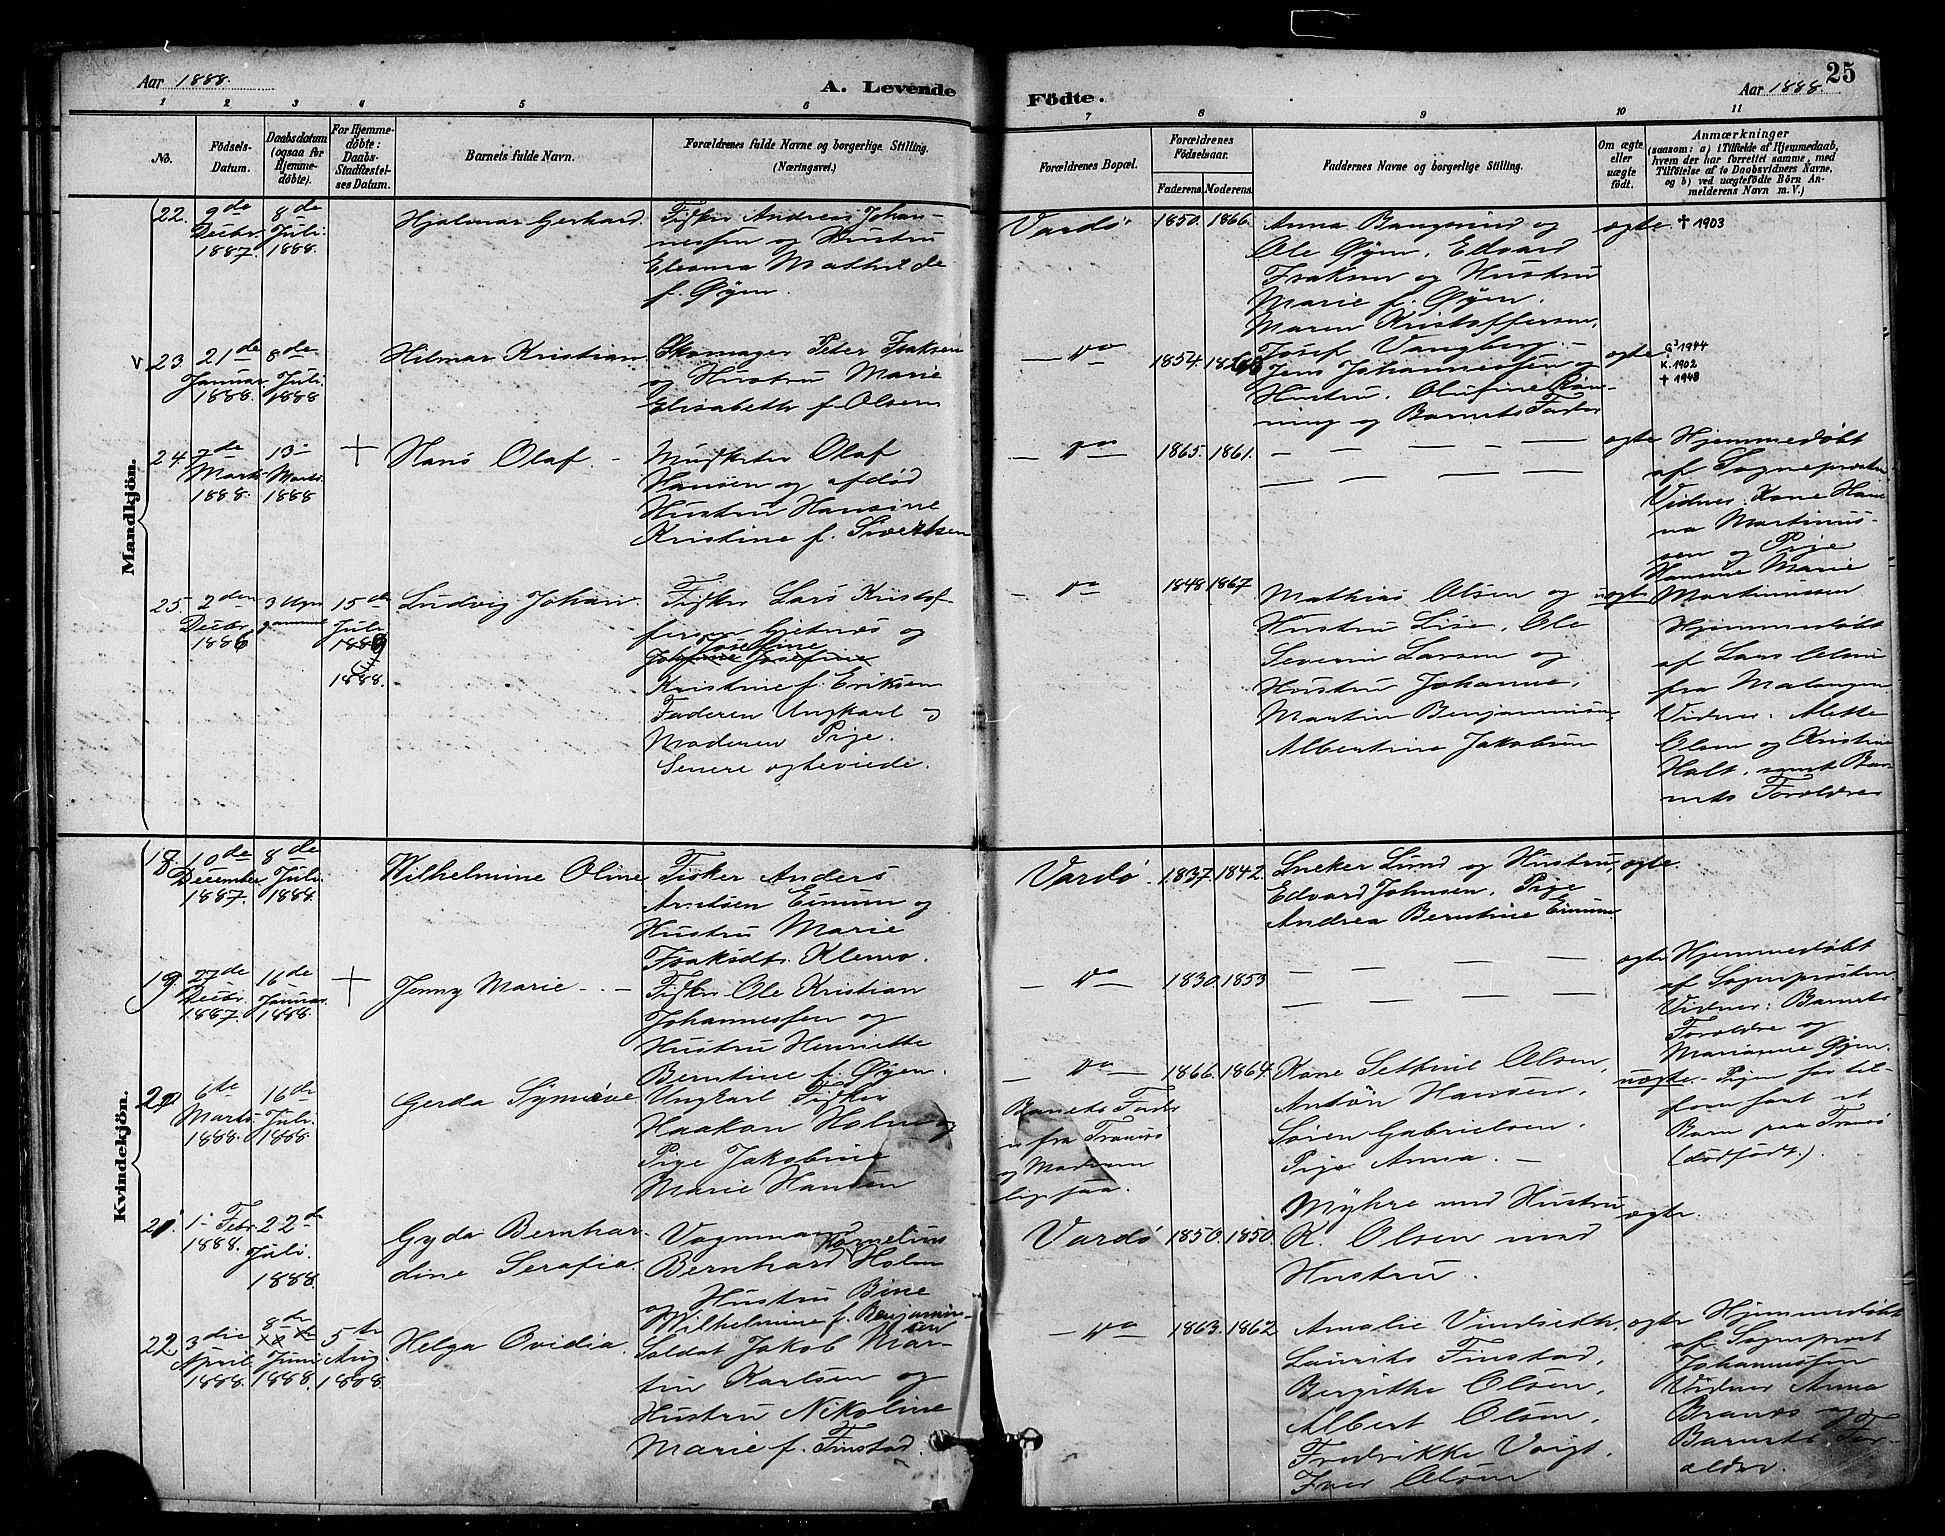 Aar 1888.
A. Levende
Födte.
Aar 1888.
25
1 2 3 4 5 6 7 8 9 10 11
No.
Födsels-
Datum.
Daabsdatum
(ogsaa for
Hjemme-
døbte).
For Hjemme-
døbte:
Daabs-
Stadfæstel-
ses Datum.
Barnets fulde Navn.
Forældrenes fulde Navne og borgerlige Stilling.
(Næringsvei.)
Forældrenes Bopæl.
Forældrenes
Födselsaar.
Faderens. Moderens.
Faddernes Navne og borgerlige Stilling.
Om ægte
eller
uægte
født.
Anmærkninger
(saasom: a) i Tilfælde af Hjemmedaab,
hvem der har forrettet samme, med
Tilföielse af to Daabsvidners Navne,
og b) ved uægtefödte Börn An-
melderens Navn m. V.)
Mandkjön.
22.
9de
Decbr.
1887.
8de
Juli
1888.
Hjalmar Gerhard
Fisker Andreas Johan-
nessen og Hustru
Eleonora Mathilde
f. Øyen.
Vardø
1850. 1866.
Anna Bangsund og
Ole Øyen, Edvard
Isaksen og Hustru
Marie f. Øyen.
Maren Kristoffersen.
ægte.
† 1903
v
23.
21de
Januar
1888.
8de
Juli
1888
Hilmar Kristian
Skomager Peter Isaksen
og Hustru Marie
Elisabeth f. Olsen
— do —
1854.
Josef Vangberg —
Jens Johannessen og
Hustru. Olufine Røn-
ning og Barnets Fader
ægte
G³ 1944
K. 1902
† 1948
24.
7de
Marts
1888.
13de
Marts
1888
+
Hans Olaf. —
Musketer Olaf
Hansen og afdød
Hustru Hansine
Kristine f. Sivertsen
— do —
1865. 1861.
— — — — —
ægte
Hjemmedøbt
af Sognepresten
Vidner: Kone Han-
na Martinus-
sen og Pige
Hansine Marie
Martinussen
25.
2den
Decbr.
1886
3 Ugr
gammel
15de
Juli
1888.
Ludvig Johan.
Fisker Lars Kristof-
fersen Gjetnæs og
Josefine
Kristine f. Eriksen
Faderen Ungkarl og
Moderen Pige.
Senere ægteviede.
— do
1848 1867
Mathias Olsen og
Hustru Lise, Ole
Severin Larsen og
Hustru Johanne,
Martin Benjaminsen,
Albertine Jakobsen
uægte
Hjemmedøbt
af Lars Olsen
fra Malangen
Vidner: Alette
Olsen og Kristine
Holt, samt Bar-
nets Forældre
Kvindekjön.
18.
10de
December
1887.
8de
Juli
1888.
Wilhelmine Oline
Fisker Anders
Arntsen Einum og
Hustru Marie
Isaksdtr. Klemo.
Vardø.
1837. 1842.
Sneker Lund og Hustru,
Edvard Johnsen, Pige
Andrea Berntine Einum
ægte.
19.
27de
Decbr.
1887.
16de
Januar
1888.
+
Jenny Marie — —
Fisker Ole Kristian
Johannessen og
Hustru Henriette
Berntine f. Øyen.
— do —
1830. 1853
— — — —
ægte
Hjemmedøbt
af Sognepresten
Vidner: Barnets
Forældre og
Marianne Øyen.
20
6te
Marts
1888.
16de
Juli
1888.
Gerda Synøve
Ungkarl Fisker
Haakon Holm og
Pige Jakobine
Marie Hansen
— do —
Barnets Fader
er fra Tranøs
og Moderen
ligesaa.
1866. 1864.
Kone Olsen,
Anton Hansen,
Søren Gabrielsen.
Pige Anna. —
uægte
Pigen har til-
forn faat et
Barn paa Tranøs
(dødfødt.)
21
1. Febr.
1888.
22de
Juli.
1888.
Gyda Bernhar-
dine Serafia.
Vognmand
Kornelius
Bernhard Holm
og Hustru Bine
Wilhelmine f. Benjamin-
sen
Vardø
1850. 1850.
Myhre med Hustru
K. Olsen med
Hustru.
ægte.
22
3die
April
1888.
8de
Juni
1888.
5te
Aug.
1888.
Helga Ovidia.
Soldat Jakob Mar-
tin Karlsen og
Hustru Nikoline
Marie f. Finstad.
— do —
1863. 1862
Amalie Vindseth,
Laurits Finstad,
Bergithe Olsen,
Albert Olsen.
Fredrikke Voigt.
Iver Olsen
ægte
Hjemmedøbt
af Sogneprest
Johannessen
Vidner Anna
Brands og
Barnets For-
ældre.